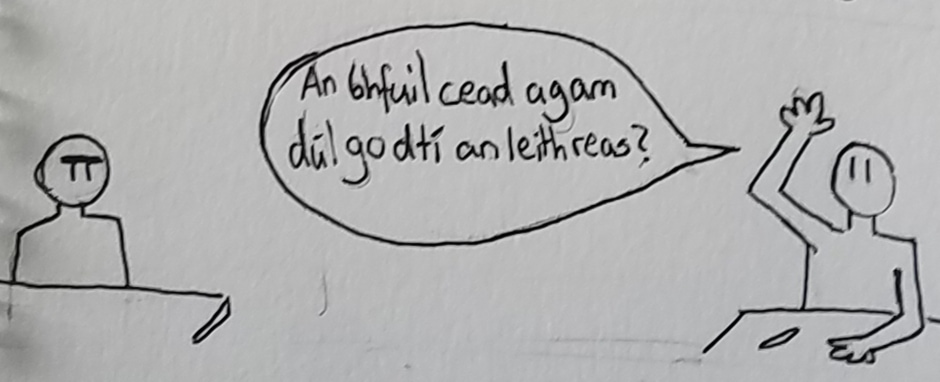 An bhfuil cead agam
dúl go dtí an leithreas?